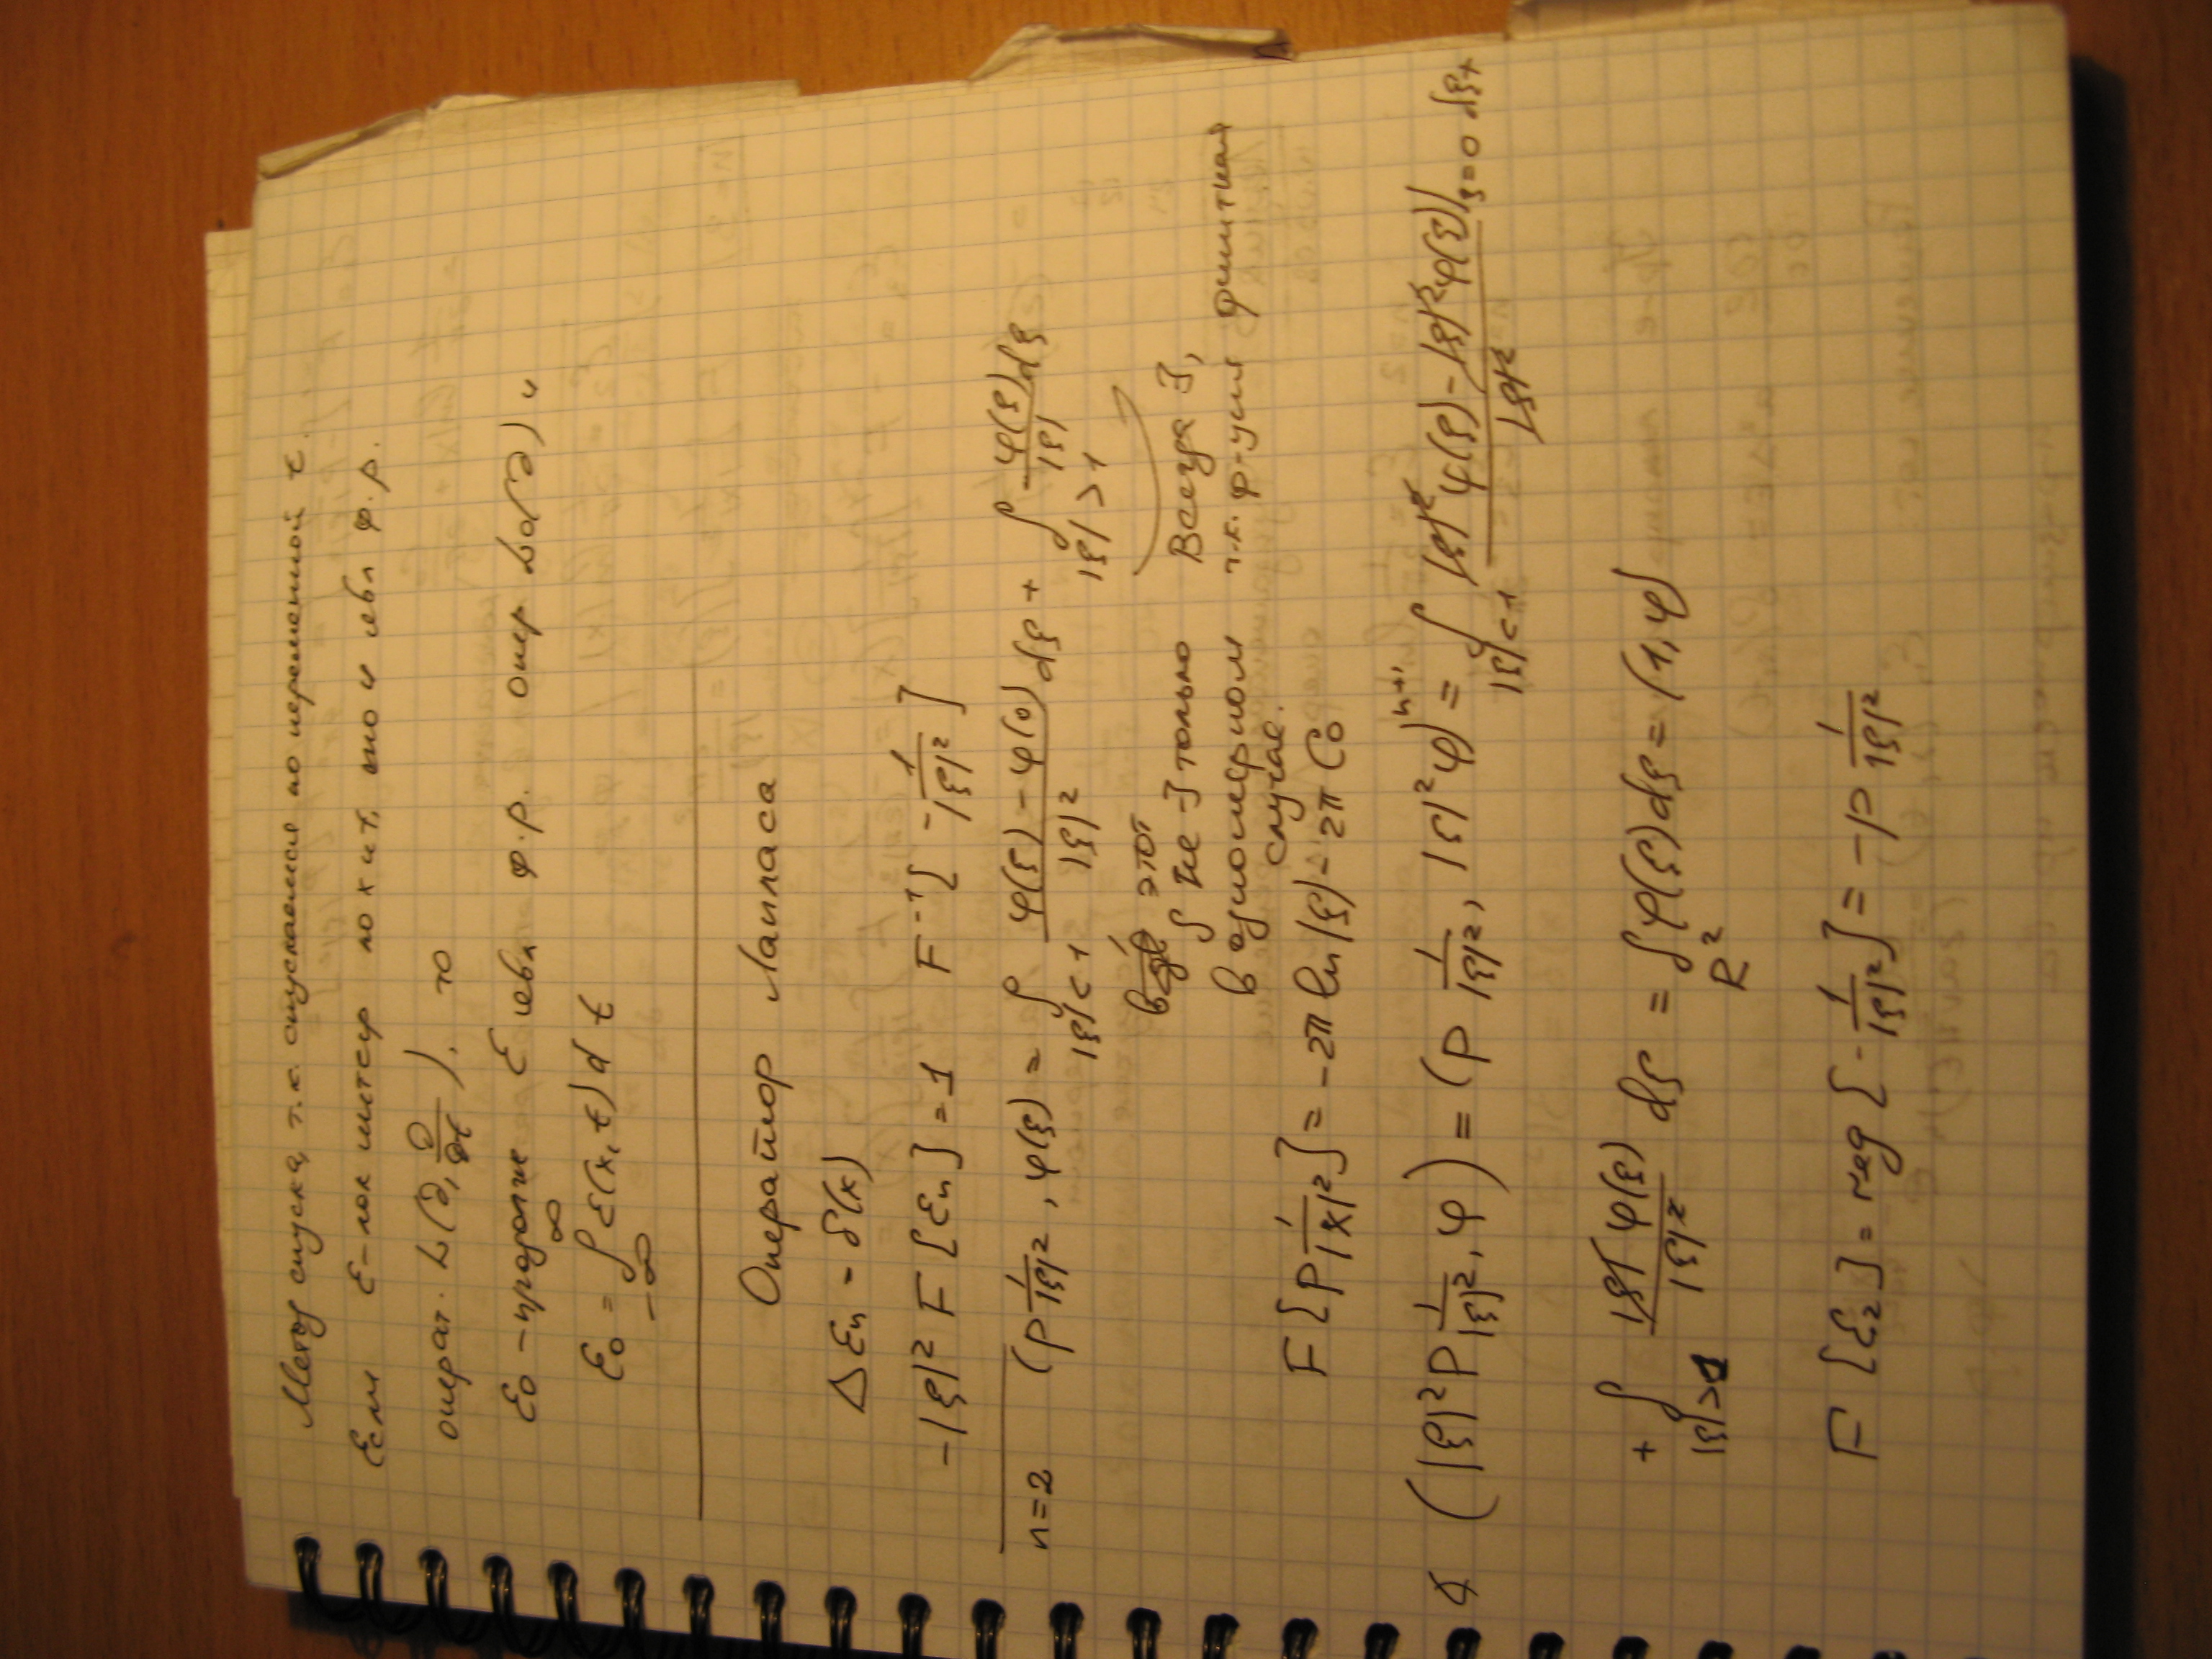 Метод спуска, т.к. спускаемся по переменной t.
Если ε-лок интегр по x и t, то и явл ф.р.
операт. L(∂, ∂/∂t), то
ε₀ - продолже ε явл ф.р. опер L₀(∂) и
ε₀ = ∫_{-∞}^{∞} ε(x, t) dt
Оператор Лапласа
Δεₙ = δ(x)
-|ξ|² F[εₙ] = 1 F⁻¹[-1/|ξ|²]
n=2 (P 1/|ξ|², φ(ξ)) = ∫_{|ξ|<1} (φ(ξ) - φ(0))/|ξ|² dξ + ∫_{|ξ|>1} φ(ξ)/|ξ| dξ
этот ∫ не ∃ только в одномерном случае.
Всегда ∃, т.к. ф-ция финитная
F[P 1/|x|²] = -2π ln|ξ| - 2π C₀
(|ξ|² P 1/|ξ|², φ) = (P 1/|ξ|², |ξ|² φ) = ∫_{|ξ|<1} (|ξ|² φ(ξ) - |ξ|² φ(ξ)|_{ξ=0})/|ξ|² dξ +
+ ∫_{|ξ|>1} |ξ|² φ(ξ)/|ξ|² dξ = ∫_{R²} φ(ξ)dξ = (1, φ)
F[ε₂] = reg[-1/|ξ|²] = -P 1/|ξ|²